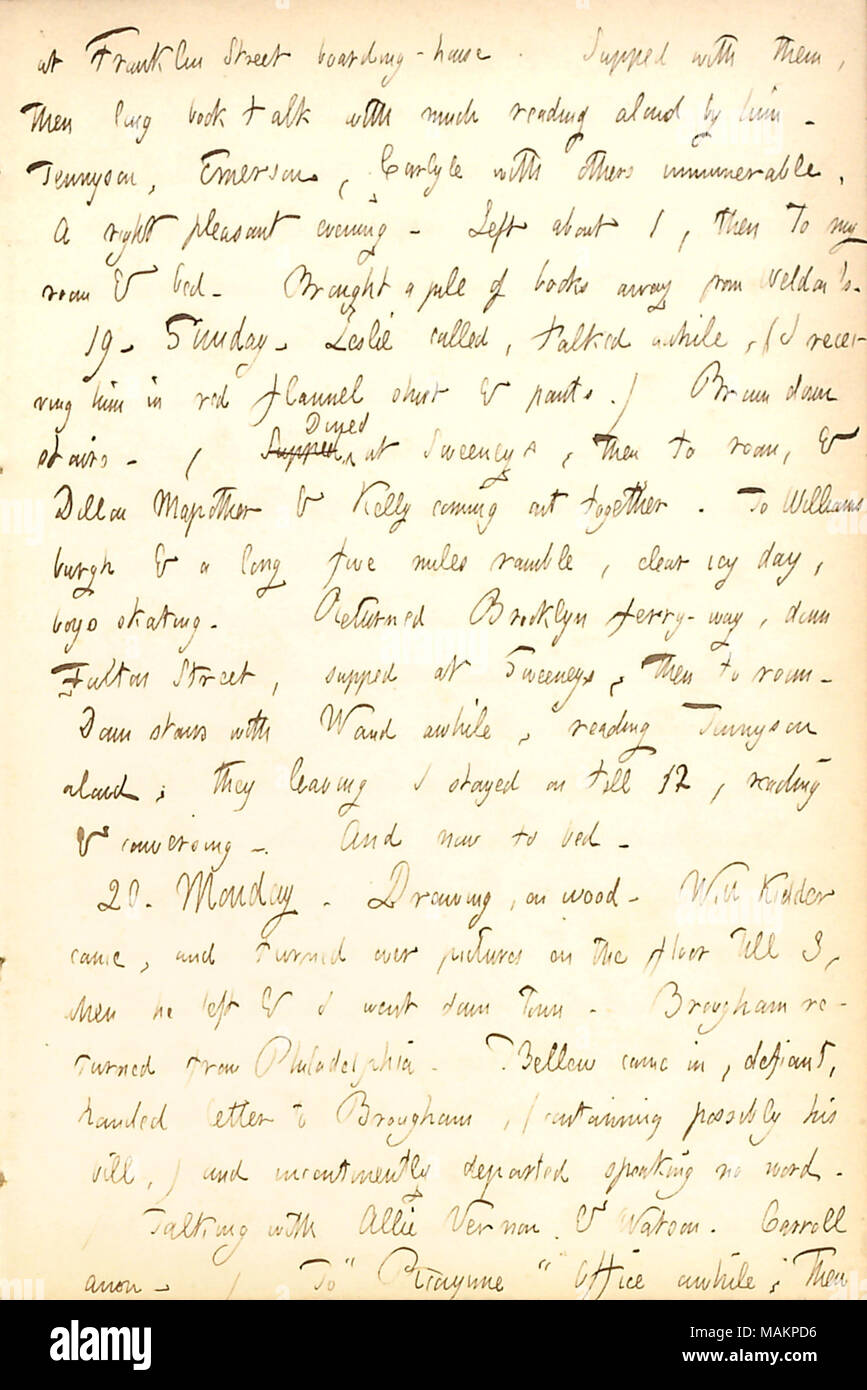 at Franklin Street boarding-house. Supped with them,
then long book talk with much reading aloud by him -
Tennyson, Emerson, Carlyle with others innumerable.
A right pleasant evening - Left about 1, then to my
room & bed - Brought a pile of books away from Weldon's.
19. Sunday. Leslie called, talked awhile, (I recei-
ving him in red flannel shirt & pants.) Down
stairs - / Supped Dined at Sweeneys, then to room, &
Dillon Mapother & Kelly coming out together. To Williams
burgh & a long five miles ramble, clear icy day,
boys skating. Returned Brooklyn ferry-way, down
Fulton Street, supped at Sweeneys, then to room -
Down stairs with Waud awhile, reading Tennyson
aloud; they leaving I stayed on till 12, reading
& conversing -. And now to bed -
20. Monday. Drawing, on wood - Will Kidder
came, and turned over pictures on the floor till 3,
when he left & I went down town - Brougham re-
turned from Philadelphia. Bellew came in, defiant,
handed letter to Brougham, (containing possibly his
bill,) and incontinently departed speaking no word.
/ Talking with Allie Vernon & Watson. Carroll
anon - / To "Picayune" Office awhile; then
alamy
Image ID: MAKPD6
www.alamy.com